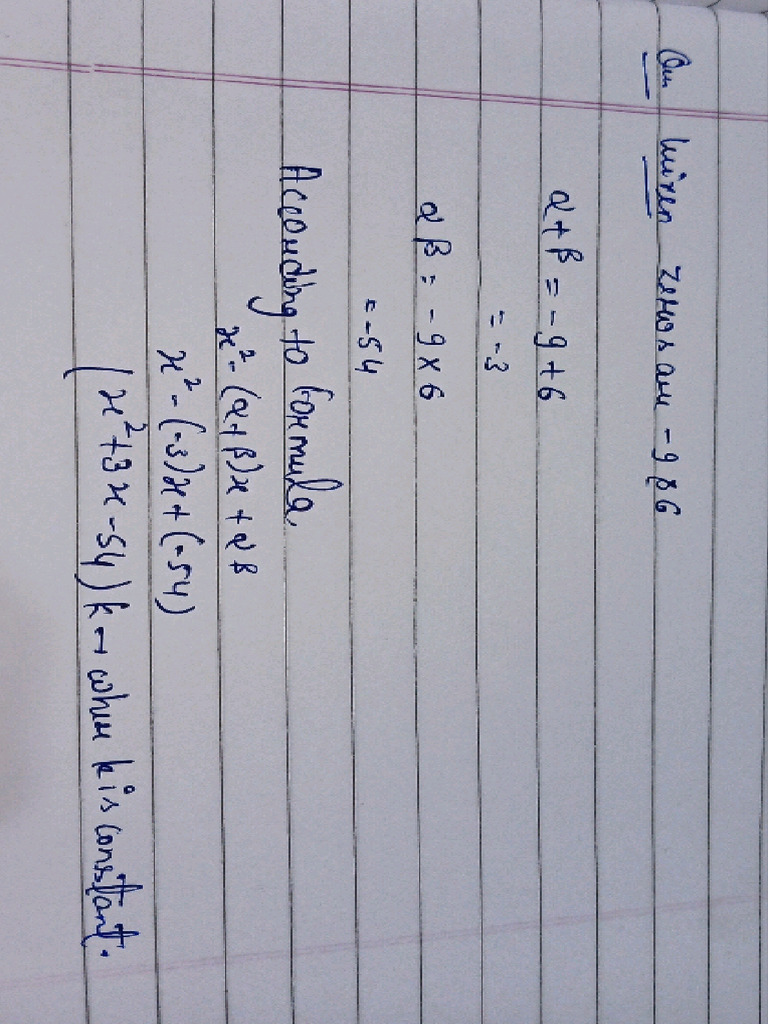 Given zeros are -9 & 6
α + β = -9 + 6
= -3
αβ = -9 × 6
= -54
According to formula
x² - (α + β)x + αβ
x² - (-3)x + (-54)
(x² + 3x - 54) k → where k is constant.